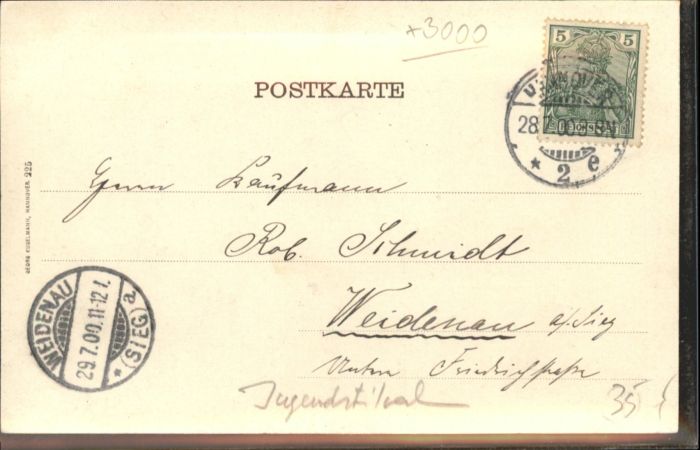 +3000
5 5
POSTKARTE
HANNOVER
28.7.00 8-9N
* 2 e
GEORG KUGELMANN, HANNOVER 925
Herrn Kaufmann
Rob. Schmidt
Weidenau a/Sieg
Untere Friedrichstraße
WEIDENAU
29.7.00.11-12V.
* (SIEG) a.
Jugendstil
35